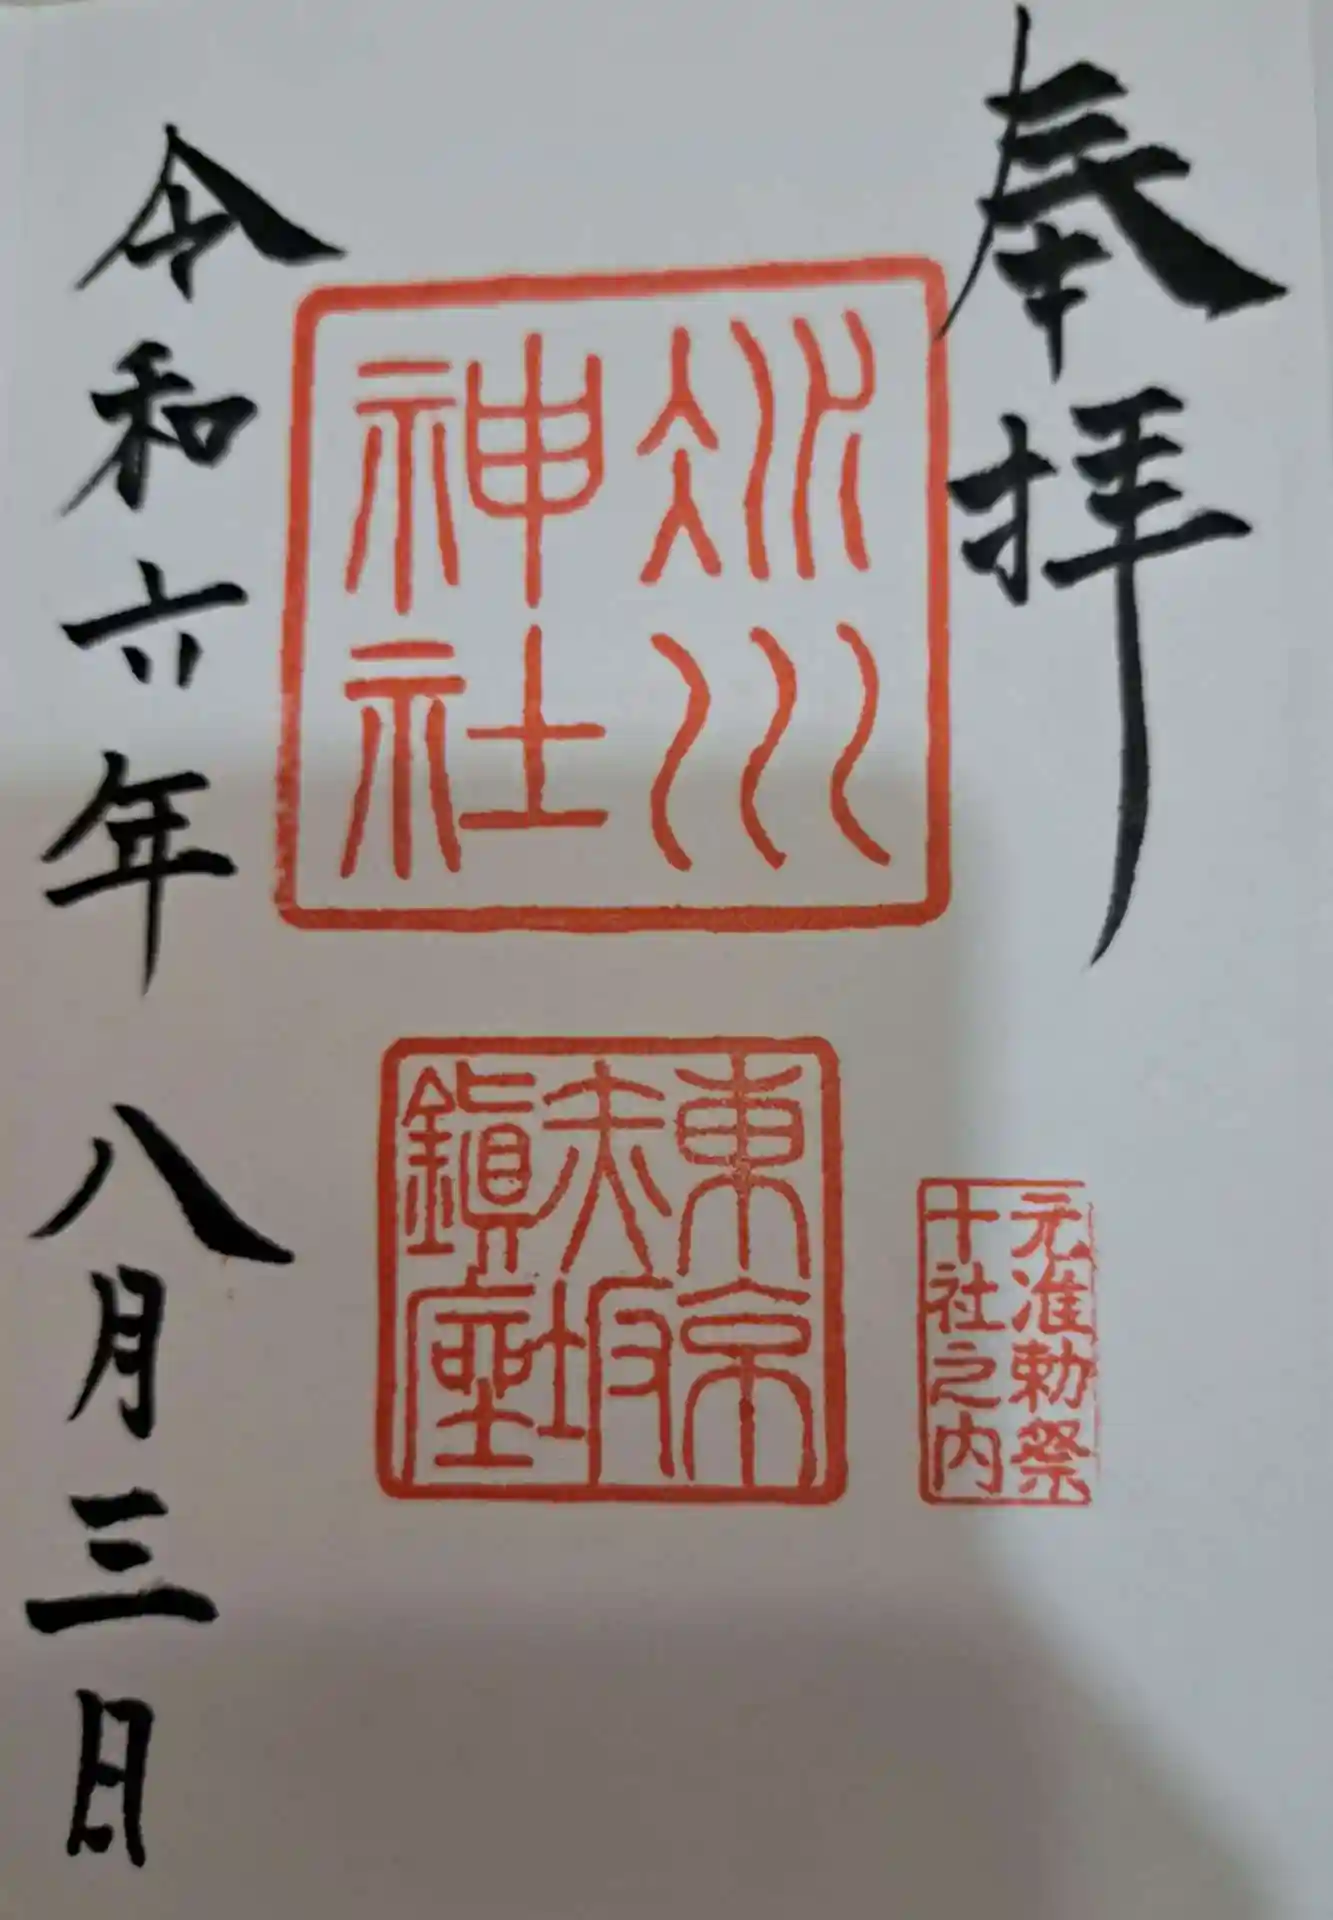 奉拝
氷川
神社
東京
赤坂
鎮座
元准勅祭
十社之内
令和六年八月三日